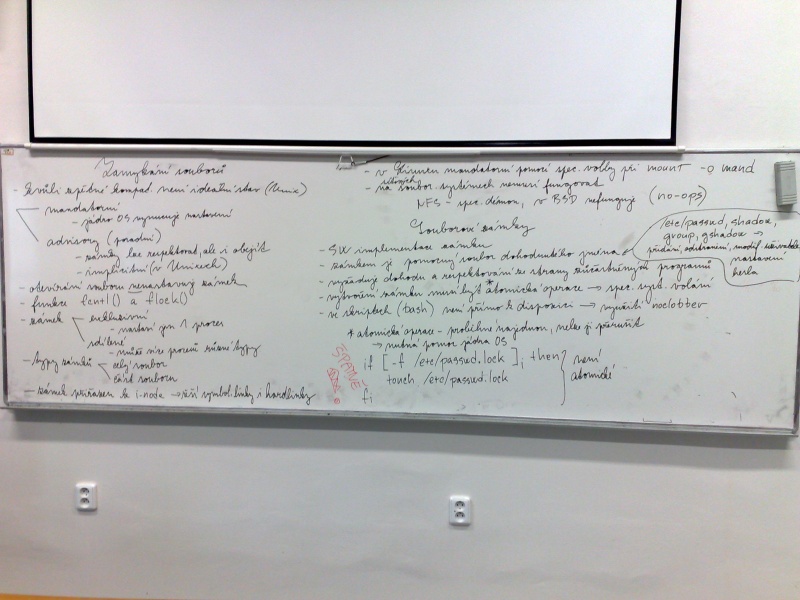 Zamykání souborů
- kvůli zpětné kompat. není ideální stav (Unix)
mandatorní
- jádro OS vynucuje nastavení
advisory (poradní)
- zámky lze respektovat, ale i obejít
- implicitní (v Unixech)
- otevírání souboru nenastavuje zámek
- funkce fcntl() a flock()
- zámek
exkluzivní
- nastaví jen 1 proces
sdílené
- může více procesů různé typy
- typy zámků
celý soubor
část souboru
- zámek přiřazen k i-node → řeší symbol. linky i hardlinky
- v Linuxu mandatorní pomocí spec. volby při mount -o mand
- na síťových soubor. systémech nemusí fungovat
NFS - spec. démon, v BSD nefunguje (no-ops)
Souborové zámky
- SW implementace zámku
- zámkem je pomocný soubor dohodnutého jména
/etc/passwd, shadow,
group, gshadow →
přidání, odstranění, modif. uživatele
nastavení
hesla
- vyžaduje dohodu a respektování ze strany zúčastněných programů
- vytvoření zámku musí být atomická operace* → spec. syst. volání
- ve skriptech (bash) není přímo k dispozici → využití noclobber
* atomická operace - proběhne najednou, nelze ji přerušit
→ nutná pomoc jádra OS
ŠPATNĚ
if [ -f /etc/passwd.lock ]; then
touch /etc/passwd.lock
fi
není
atomické